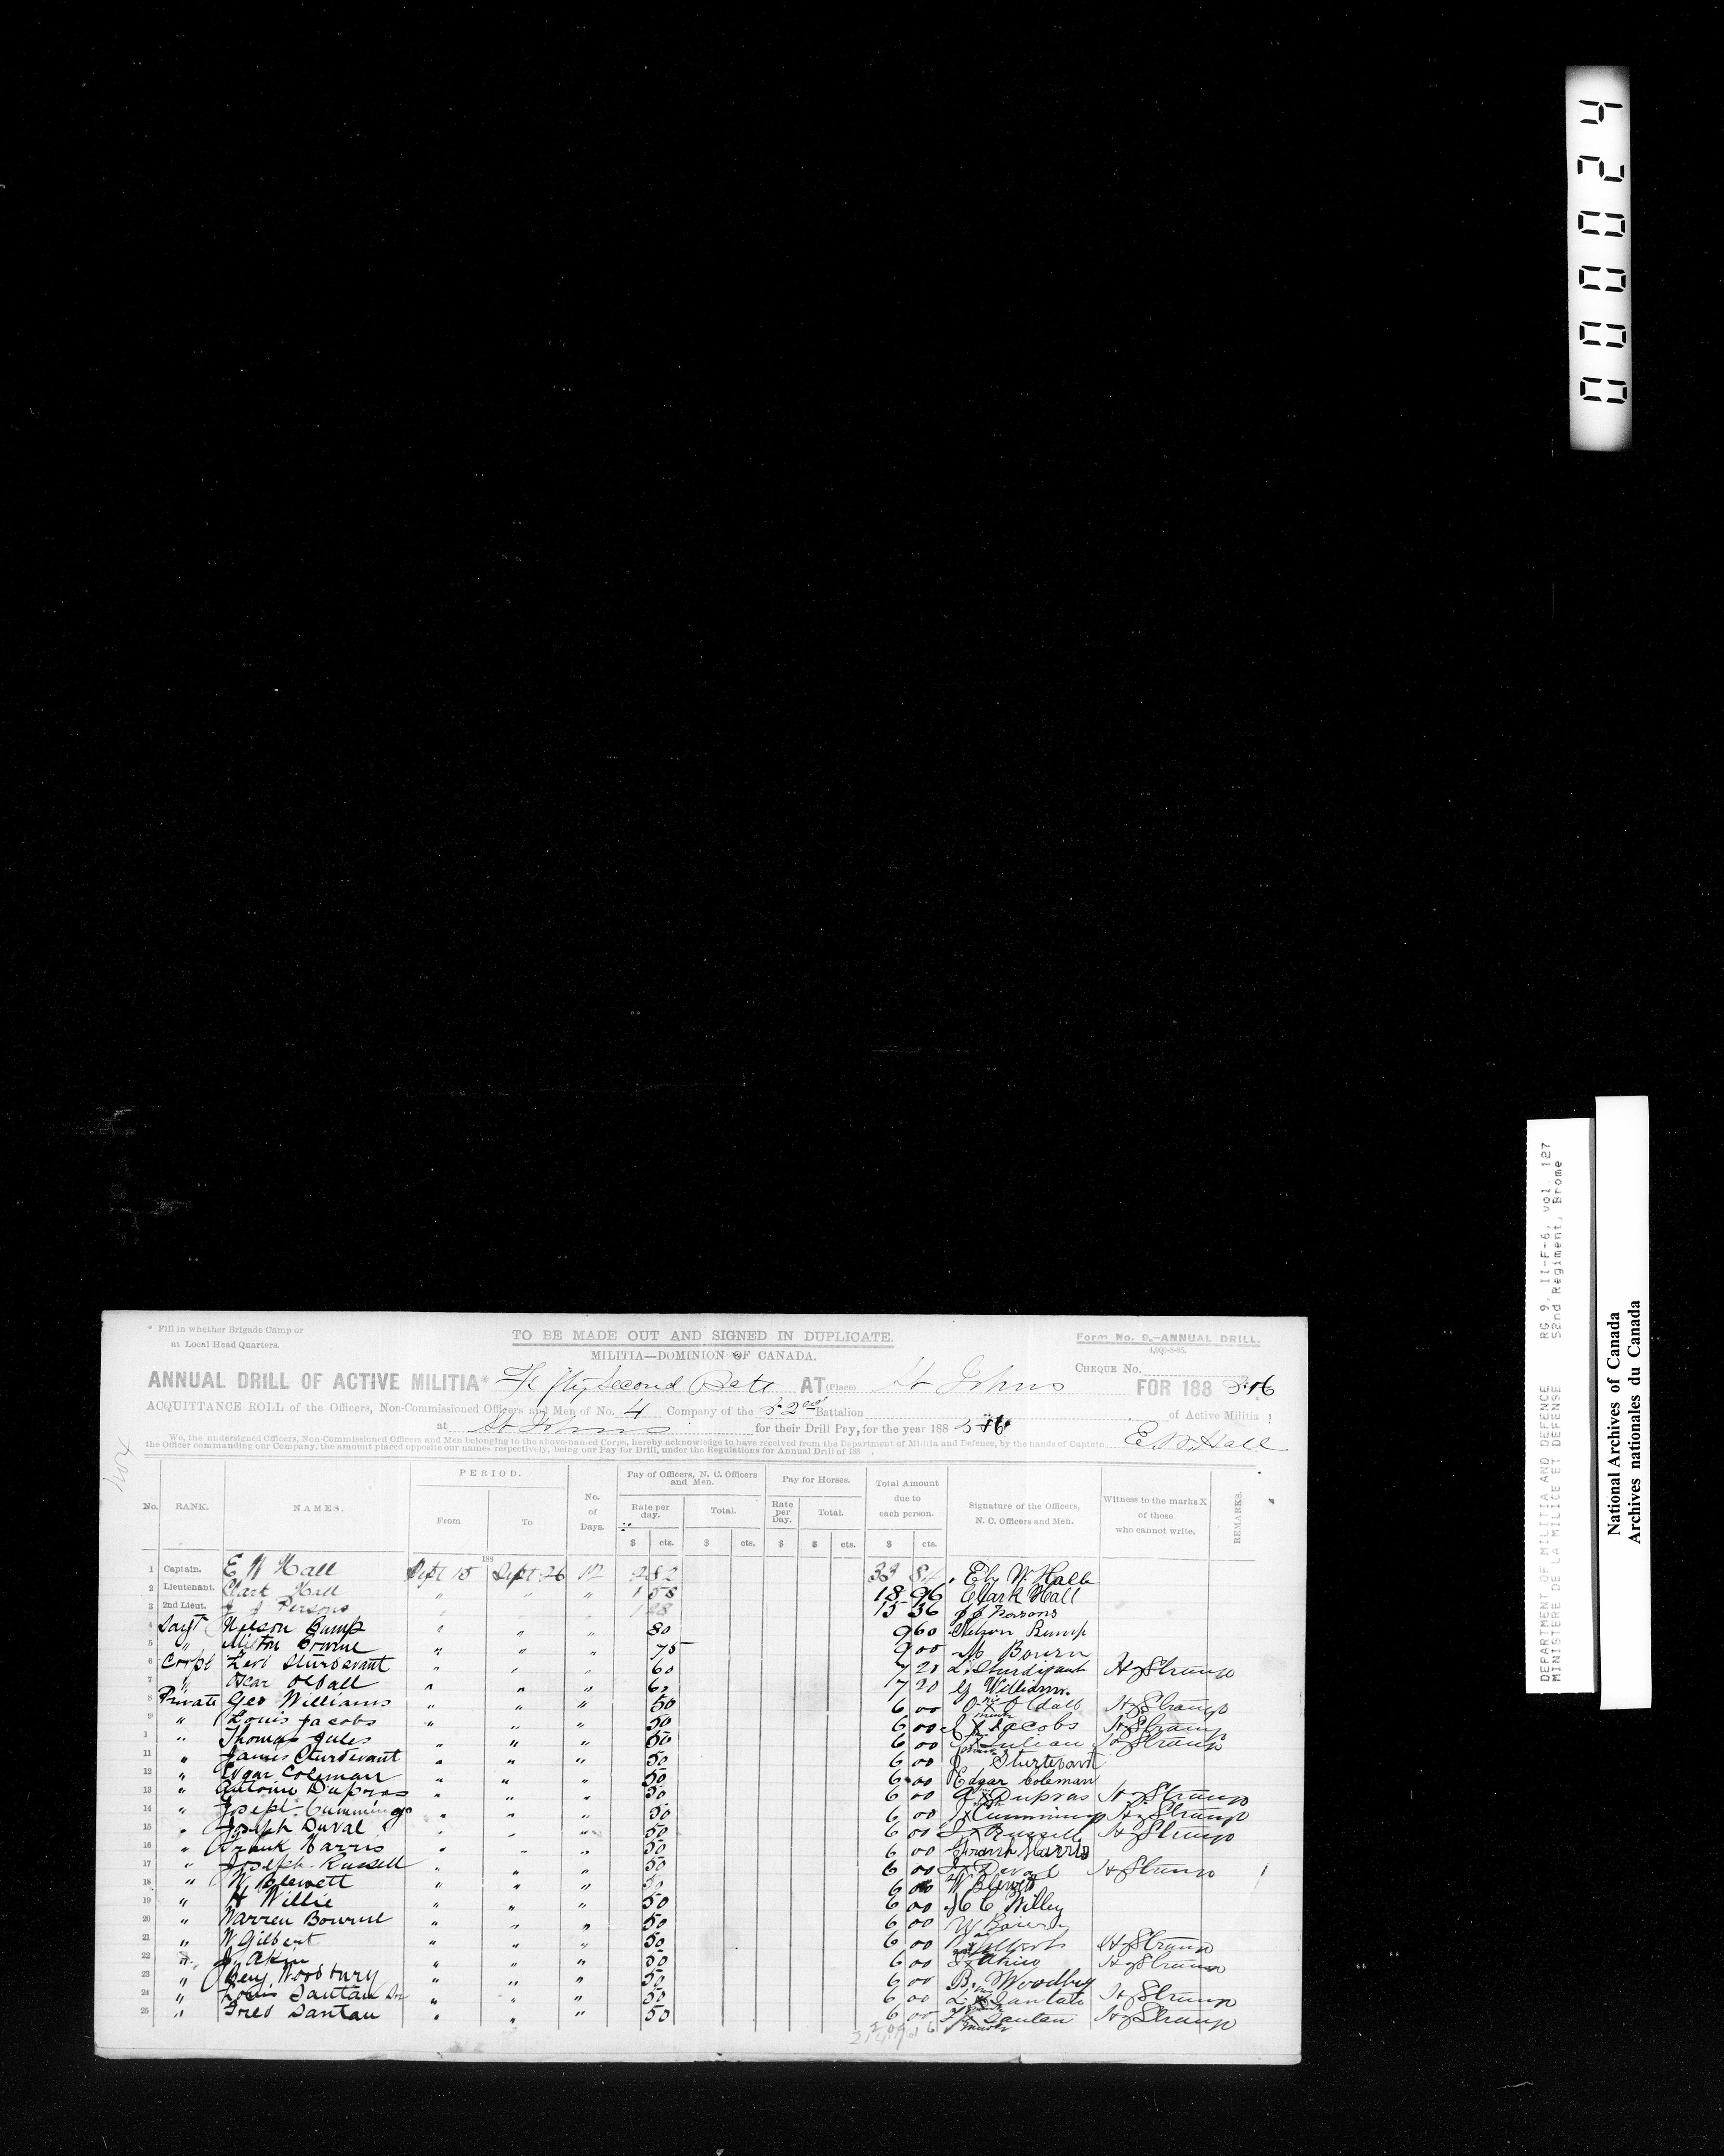 00024
* Fill in whether Brigade Camp or
at Local Head Quarters.
TO BE MADE OUT AND SIGNED IN DUPLICATE.
MILITIA—DOMINION OF CANADA.
Form No. 9.—ANNUAL DRILL.
CHEQUE No.
ANNUAL DRILL OF ACTIVE MILITIA* Fifty Second Batt AT (Place) St Johns FOR 188
ACQUITTANCE ROLL of the Officers, Non-Commissioned Officers and Men of No. 4 Company of the 52nd Battalion of Active Militia
at St Johns for their Drill Pay, for the year 188
We, the undersigned Officers, Non-Commissioned Officers and Men belonging to the above-named Corps, hereby acknowledge to have received from the Department of Militia and Defence, by the hands of Captain E W Hall
the Officer commanding our Company, the amount placed opposite our names respectively, being our Pay for Drill, under the Regulations for Annual Drill of 188
No. RANK. NAMES. PERIOD. From To No. of Days. Pay of Officers, N. C. Officers and Men. Rate per day. Total. Pay for Horses. Rate per Day. Total. Total Amount due to each person. Signature of the Officers, N. C. Officers and Men. Witness to the marks X of those who cannot write. REMARKS.
$ cts. $ cts. $ $ cts. $ cts.
1 Captain. E W Hall Sept 15 188 Sept 26 12 2 82 33 84 Eli W. Hall
2 Lieutenant. Clark Hall " " " 1 58 18 96 Clark Hall
3 2nd Lieut. J J Persons " " " 1 28 15 36 J J Persons
4 Sergt Nelson Bump " " " 80 9 60 Nelson Bump
5 " Milton Bourne " " " 75 9 00 M Bourn
6 Corpl Levi Sturdevant " " " 60 7 20 L Sturdivant
7 " Oscar Oldall " " " 60 7 20 G Williams
8 Private Geo Williams " " " 50 6 00 O X Odall
9 " Louis Jacobs " " " 50 6 00 X Jacobs
1 " Thomas Jules " " " 50 6 00 X Julian
11 " James Sturdevant " " " 50 6 00 J Sturtevant
12 " Edgar Coleman " " " 50 6 00 Edgar Coleman
13 " Antoine Dupras " " " 50 6 00 A X Dupras
14 " Joseph Cummings " " " 50 6 00 J X Cummings
15 " Joseph Duval " " " 50 6 00 J X Russell
16 " Frank Harris " " " 50 6 00 Frank Harris
17 " Joseph Russell " " " 50 6 00 J X Duval
18 " W Blewett " " " 50 6 00 W Blewett
19 " H Willie " " " 50 6 00 H C Willey
20 " Warren Bourne " " " 50 6 00 W Bourn
21 " W Gilbert " " " 50 6 00
22 " J. Akin " " " 50 6 00 J X Akin
23 " Benj Woodbury " " " 50 6 00 B. Woodbry
24 " Louis Santau " " " 50 6 00 L X
25 " Fred Santau " " " 50 6 00 Santau
DEPARTMENT OF MILITIA AND DEFENCE RG 9, II-F-6, vol. 127
MINISTERE DE LA MILICE ET DEFENSE 52nd Regiment, Brome
National Archives of Canada
Archives nationales du Canada